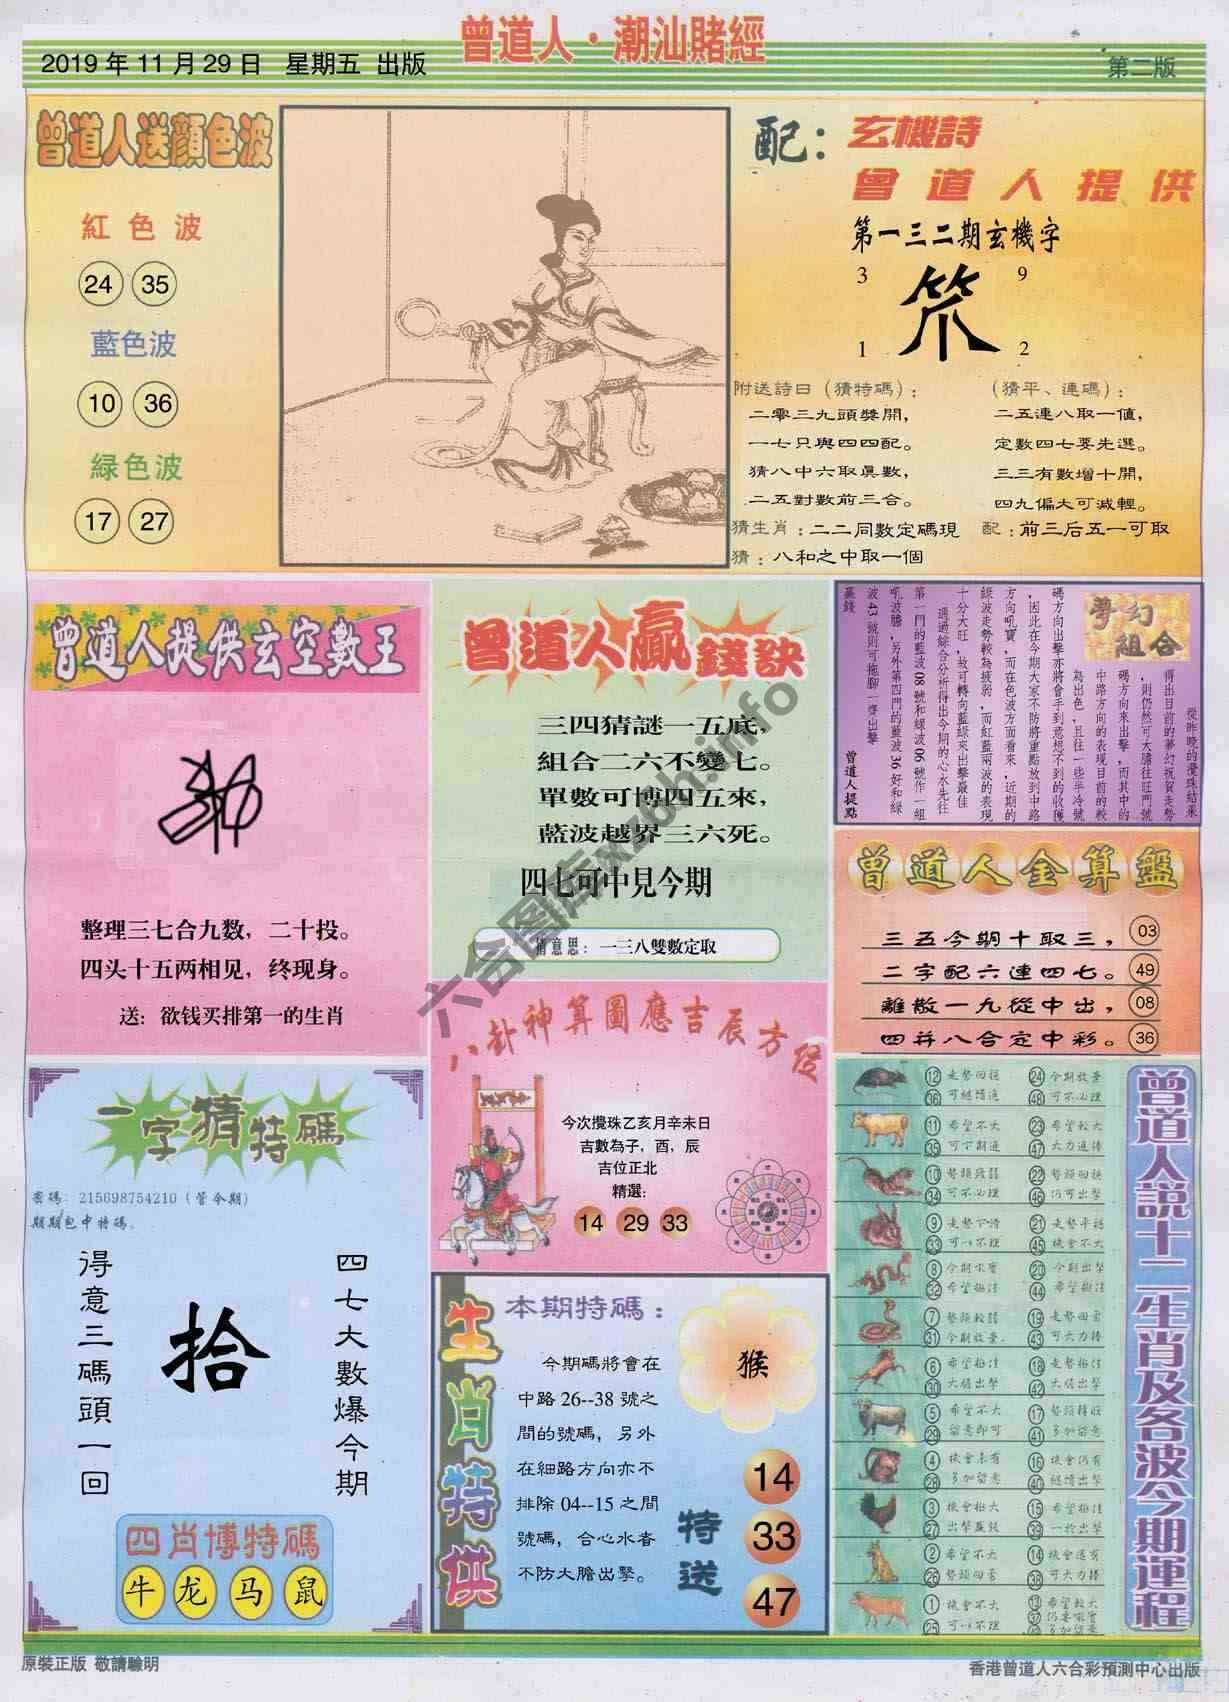 曾道人·潮汕賭經
2019年11月29日 星期五 出版
第二版
曾道人送顏色波
紅色波
24 35
藍色波
10 36
緑色波
17 27
配：玄機詩
曾道人提供
第一三二期玄機字
3 9
1 2
附送詩曰（猜特碼）：
二零三九頭獎開，
一七只與四四配。
猜八中六取真數，
二五對數前三合。
（猜平、連碼）：
二五連八取一值，
定數四七要先選。
三三有數增十開，
四九偏大可減輕。
猜生肖：二二同數定碼現 配：前三后五一可取
猜：八和之中取一個
曾道人提供玄空數王
整理三七合九数，二十投。
四头十五两相见，终现身。
送：欲钱买排第一的生肖
曾道人贏錢訣
三四猜謎一五底，
組合二六不變七。
單數可博四五來，
藍波越界三六死。
四七可中見今期
猜意思：一三八雙數定取
夢幻組合
從昨晚的攪珠結果
得出目前的夢幻祝賀走勢
，則仍然可大膽往旺門號
碼方向來出擊，而其中的
中路方向的表現目前的較
為出色，且往一些半冷號
碼方向出擊亦將會手到意想不到的收穫
，因此在今期大家不防將重點放到中路
方向吼寶，而在色波方面看來，近期的
綠波走勢較為疲弱，而紅藍兩波的表現
十分大旺，故可轉向藍綠來出擊最佳
通過綜合分析得出今期的心水先往
第一門的藍波08號和綠波06號作一組
吼波膽，另外第四門的藍波36好和綠
波43號則可拖腳一齊出擊
贏錢
曾道人提點
曾道人金算盤
三五今期十取三， 03
二字配六連四七。 49
離散一九從中出， 08
四并八合定中彩。 36
八卦神算圖應吉辰方位
今次攪珠乙亥月辛未日
吉數為子，酉，辰
吉位正北
精選：
14 29 33
一字猜特碼
密碼：215698754210（管今期）
期期包中特碼。
四七大數爆今期
拾
得意三碼頭一回
四肖博特碼
牛 龙 马 鼠
生肖特供
本期特碼：
猴
今期碼將會在
中路26--38號之
間的號碼，另外
在細路方向亦不
排除04--15之間
號碼，合心水者
不防大膽出擊。
特送
14
33
47
曾道人說十二生肖及各波今期運程
12 走勢回穩 24 今期放棄
36 可繼續追 48 可不必理
11 希望不大 23 希望較大
35 可下期追 47 大力追捧
10 勢頭疲弱 22 勢頭回穩
34 可不必理 46 仍可出擊
9 走勢下滑 21 走勢平穩
33 可以不理 45 機會不大
8 今期吼實 20 今期出擊
32 希望極佳 44 希望極佳
7 勢頭較弱 19 走勢回勇
31 今期放棄 43 可大力捧
6 希望極佳 18 走勢極佳
30 大膽出擊 42 大膽出擊
5 希望不大 17 勢頭轉旺
29 留意即可 41 多加留意
4 機會未有 16 機會仍有
28 多加留意 40 繼續出擊
3 機會極大 15 希望極佳
27 出擊贏錢 39 一於出擊
2 希望不大 14 機會還有
26 勢頭回勇 38 可大力捧
1 機會不大 13 希望較大
25 可以不理 37 仍要吼實
49 多加留意
原裝正版 敬請驗明
香港曾道人六合彩預測中心出版
六合图库xzbh.info